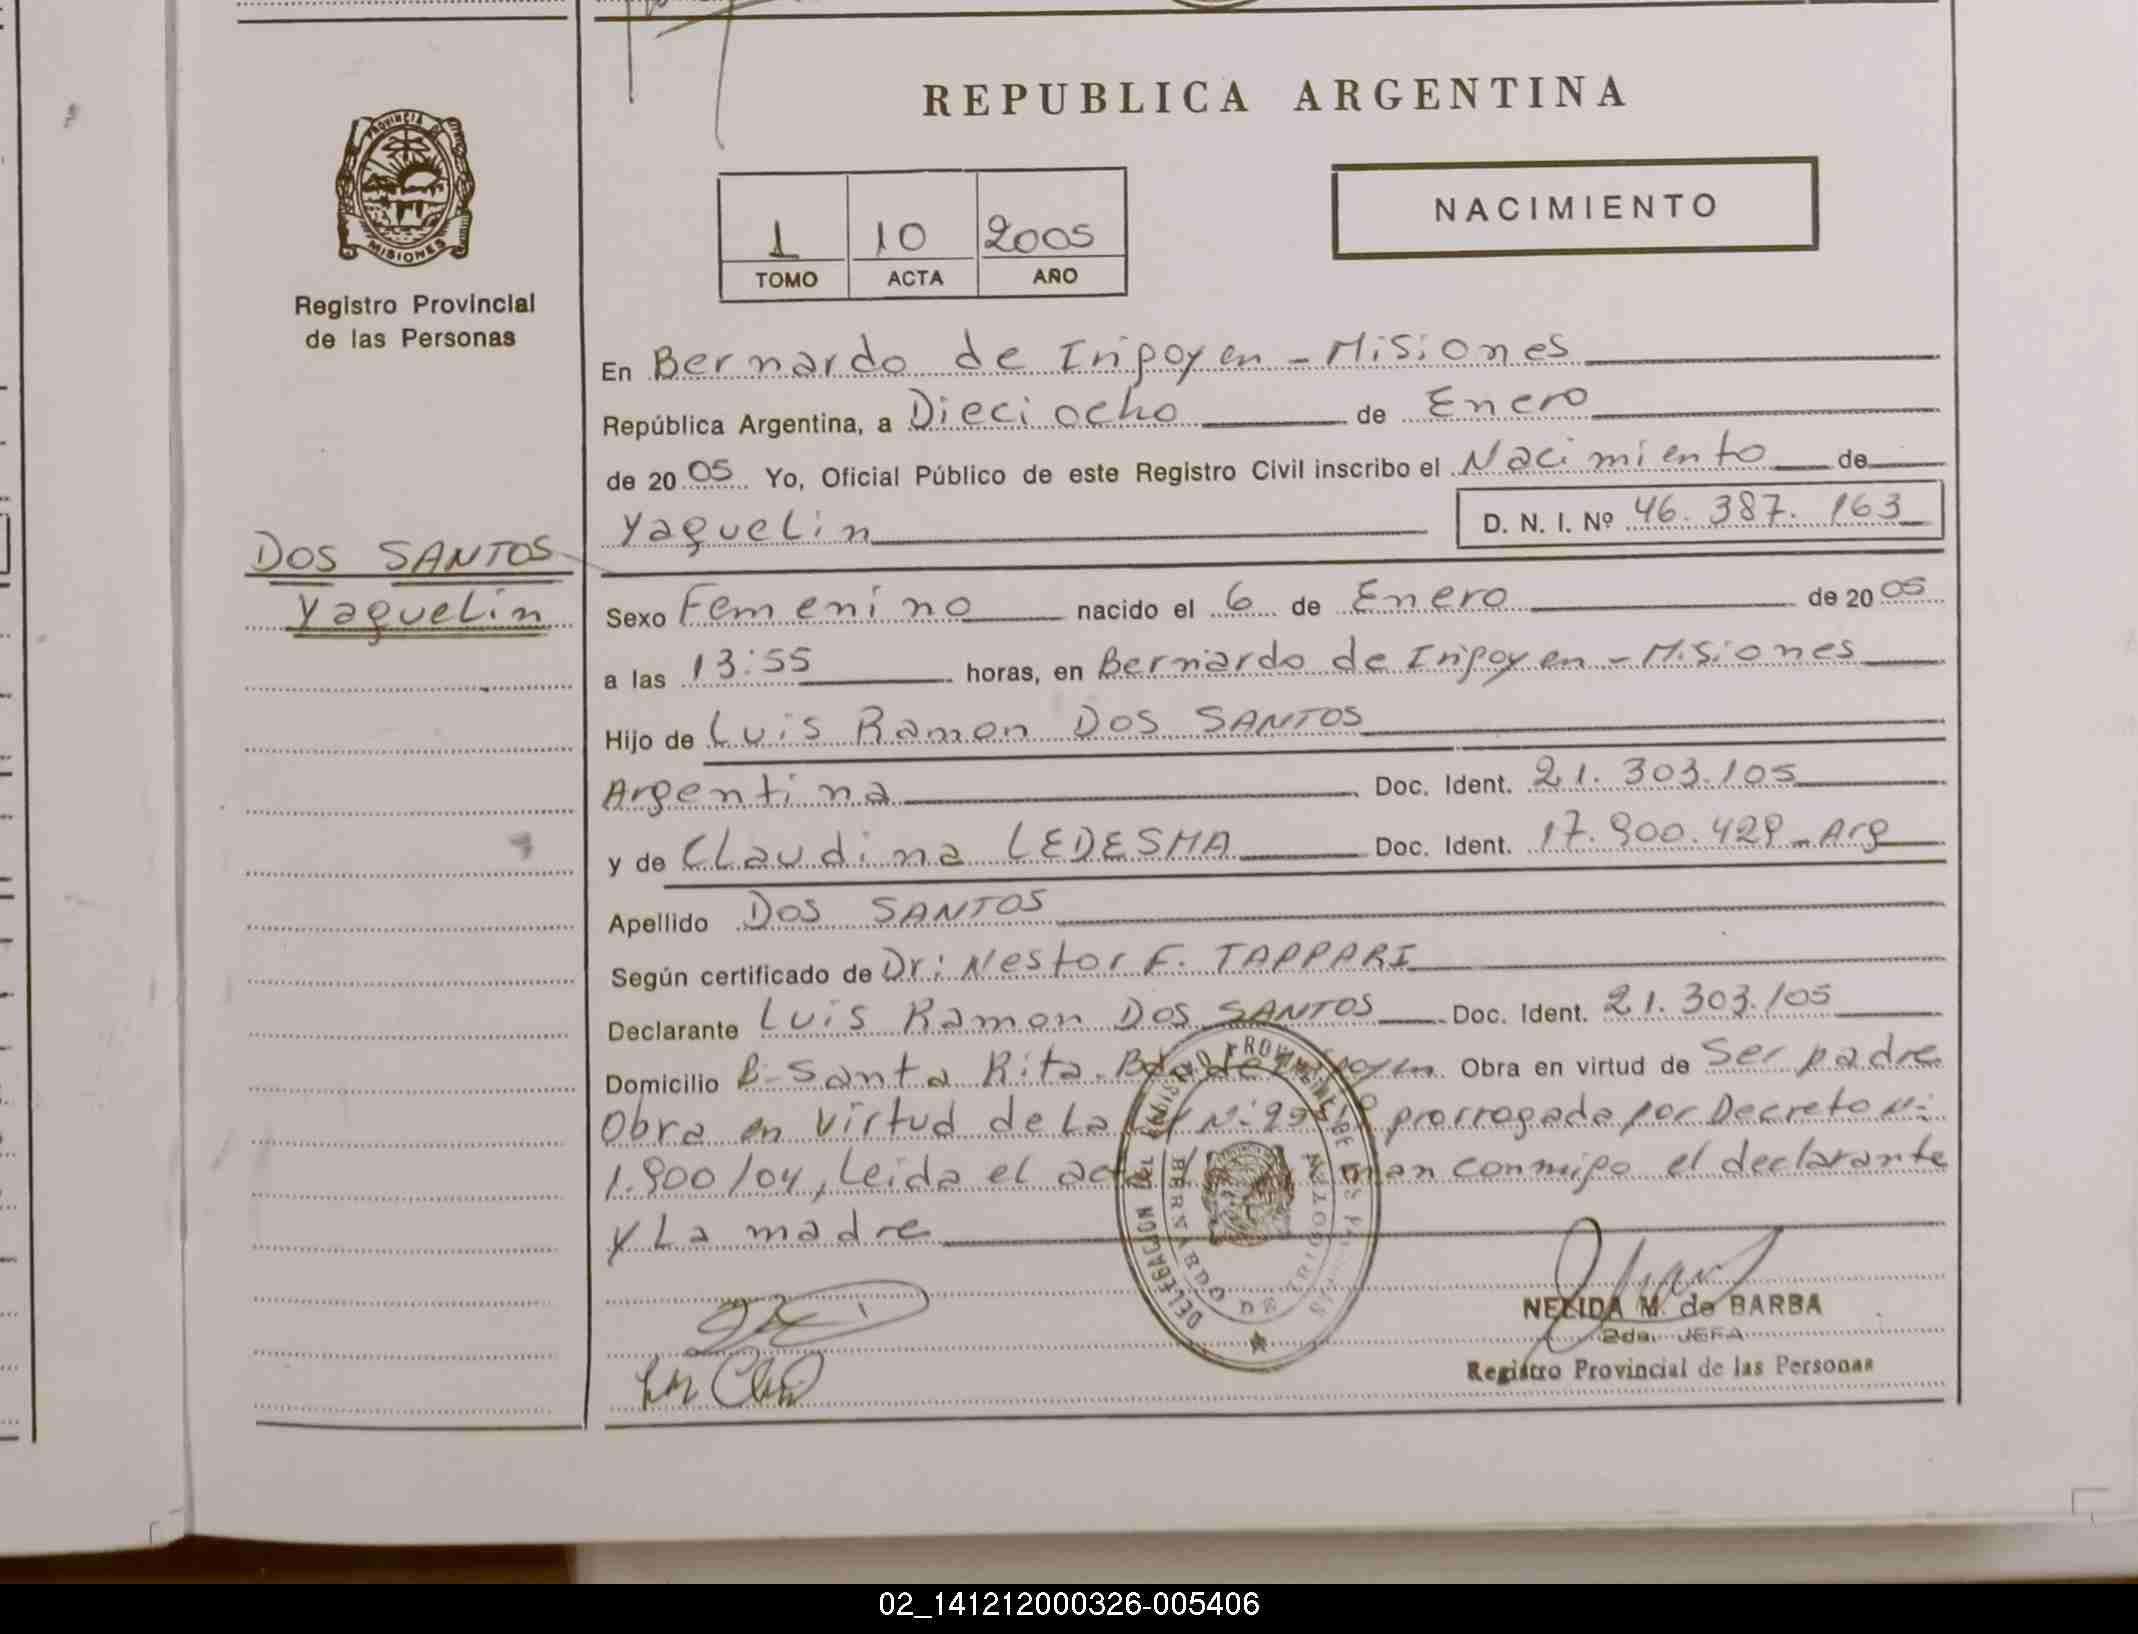 REPUBLICA ARGENTINA
PROVINCIA DE
MISIONES
Registro Provincial
de las Personas
1 10 2005
TOMO ACTA AÑO
NACIMIENTO
En Bernardo de Irigoyen - Misiones
República Argentina, a Dieciocho de Enero
de 2005 Yo, Oficial Público de este Registro Civil inscribo el Nacimiento de
Yaquelin D. N. I. Nº 46.387.163
DOS SANTOS
Yaquelin
Sexo Femenino nacido el 6 de Enero de 2005
a las 13:55 horas, en Bernardo de Irigoyen - Misiones
Hijo de Luis Ramon DOS SANTOS
Argentina Doc. Ident. 21.303.105
y de Claudina LEDESMA Doc. Ident. 17.900.429 - Arg
Apellido DOS SANTOS
Según certificado de Dr: Nestor F. TAPPARI
Declarante Luis Ramon DOS SANTOS Doc. Ident. 21.303.105
Domicilio B- Santa Rita. Bdo de Irigoyen Obra en virtud de Ser padre
Obra en virtud de La Ley N: prorrogada por Decreto N:
1.900/04, Leida el acta man conmigo el declarante
y La madre
DELEGACION DEL REGISTRO PROVINCIAL DE LAS PERSONAS
BERNARDO DE IRIGOYEN
NELIDA M. de BARBA
2da. JEFA
Registro Provincial de las Personas
02_141212000326-005406